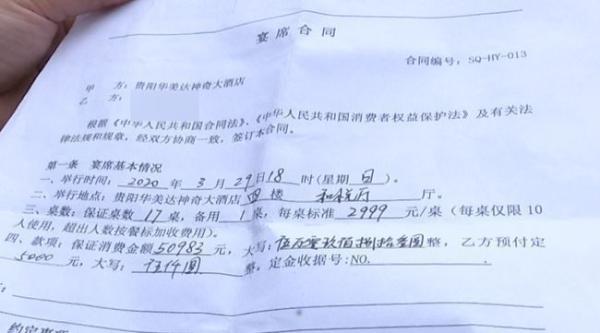 宴席合同
合同编号:SQ-HY-013
甲 方:贵阳华美达神奇大酒店
乙 方:
根据《中华人民共和国合同法》、《中华人民共和国消费者权益保护法》及有关法
律法规和规章,经双方协商一致,签订本合同。
第一条 宴席基本情况
一、举行时间:2020 年 3 月 29 日 18 时(星期 日)。
二、举行地点:贵阳华美达神奇大酒店 四 楼 厅。
三、桌数:保证桌数 17 桌,备用 1 桌,每桌标准 2999 元/桌(每桌仅限 10
人使用,超出人数按餐标加收费用)。
四、款项:保证消费金额 50983 元,大写:伍万零玖佰捌拾叁圆 整,乙方预付定
5000 元,大写:伍仟圆 整,定金收据号:NO.